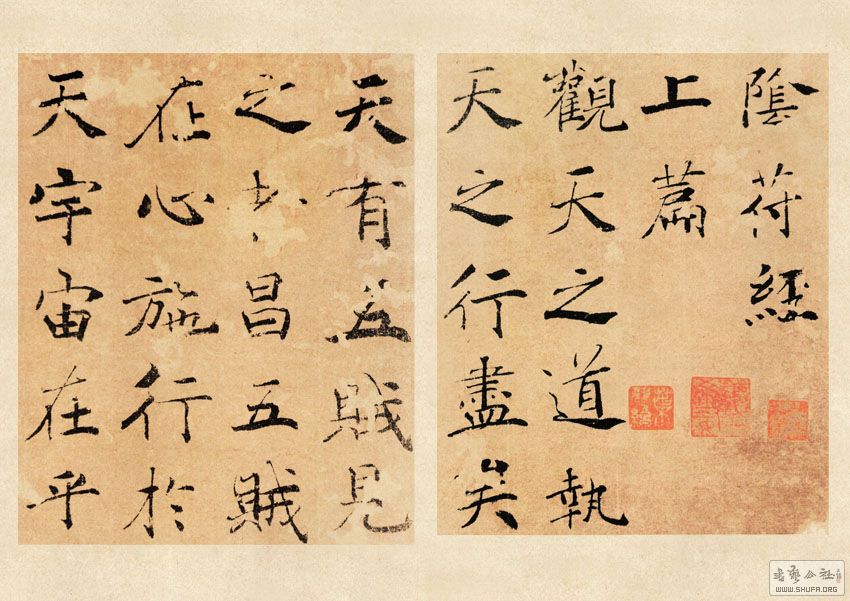 陰符經
上篇
觀天之道執
天之行盡矣
天有五賊見
之者昌五賊
在心施行於
天宇宙在乎
書藝公社
WWW.SHUFA.ORG